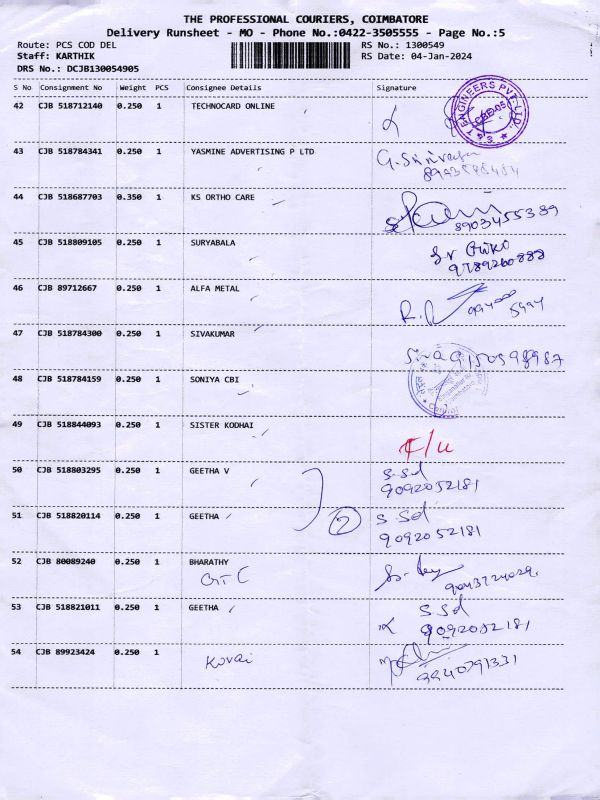 THE PROFESSIONAL COURIERS, COIMBATORE
Delivery Runsheet - MO - Phone No.:0422-3505555 - Page No.:5
Route: PCS COD DEL RS No.: 1300549
Staff: KARTHIK RS Date: 04-Jan-2024
DRS No.: DCJB130054905
S No Consignment No Weight PCS Consignee Details Signature
42 CJB 518712140 0.250 1 TECHNOCARD ONLINE
43 CJB 518784341 0.250 1 YASMINE ADVERTISING P LTD
44 CJB 518687703 0.350 1 KS ORTHO CARE
8903455389
45 CJB 518809105 0.250 1 SURYABALA
9789260888
46 CJB 89712667 0.250 1 ALFA METAL
47 CJB 518784300 0.250 1 SIVAKUMAR
Siva 9150598987
48 CJB 518784159 0.250 1 SONIYA CBI
49 CJB 518844093 0.250 1 SISTER KODHAI
50 CJB 518803295 0.250 1 GEETHA V S.Sd
9092052181
51 CJB 518820114 0.250 1 GEETHA 2 S Sd
9092052181
52 CJB 80089240 0.250 1 BHARATHY
53 CJB 518821011 0.250 1 GEETHA S Sd
9092052181
54 CJB 89923424 0.250 1 Kovai
9940791331